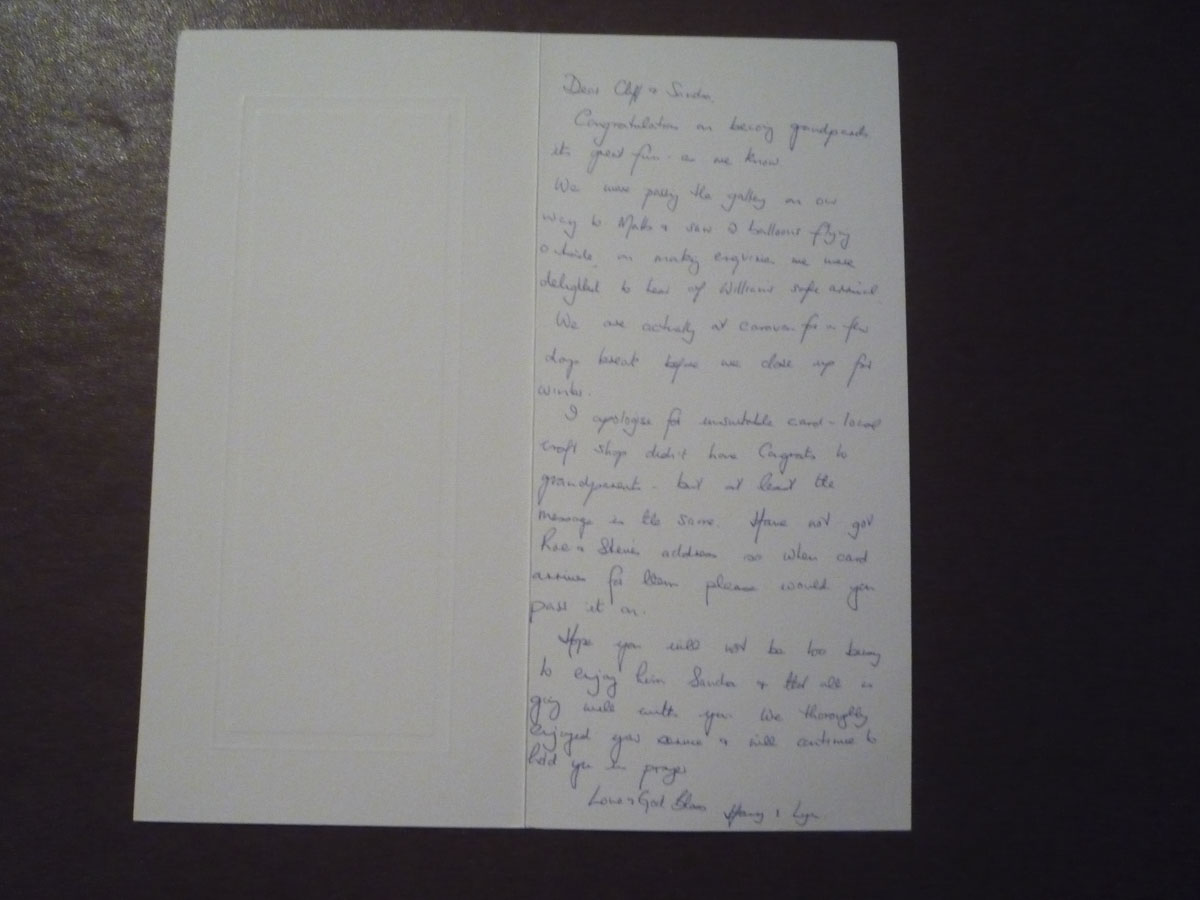 Dear Cliff & Sandra,
Congratulations on being grandparents
its great fun - as we know
We were passing the gallery on our
way to Matts & saw 2 balloons flying
outside, on making enquiries we were
delighted to hear of Williams safe arrival.
We are actually at caravan for a few
days break before we close up for
winter.
I apologise for unsuitable card - local
craft shop didn't have Congrats to
grandparents - but at least the
message is the same. Have not got
& Steves address so when card
arrives for them please would you
pass it on.
Hope you will not be too busy
to enjoy him Sandra & that all is
going well with you. We thoroughly
enjoyed your service & will continue to
hold you in prayer
Love & God Bless & Lyn